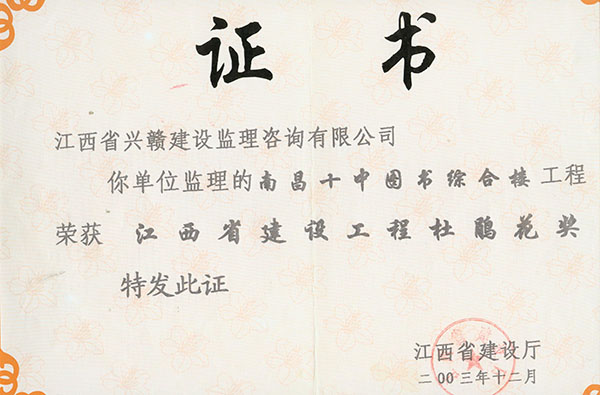 证书
江西省兴赣建设监理咨询有限公司
你单位监理的南昌十中图书综合楼工程
荣获 江西省建设工程杜鹃花奖
特发此证
江西省建设厅
二00三年十二月